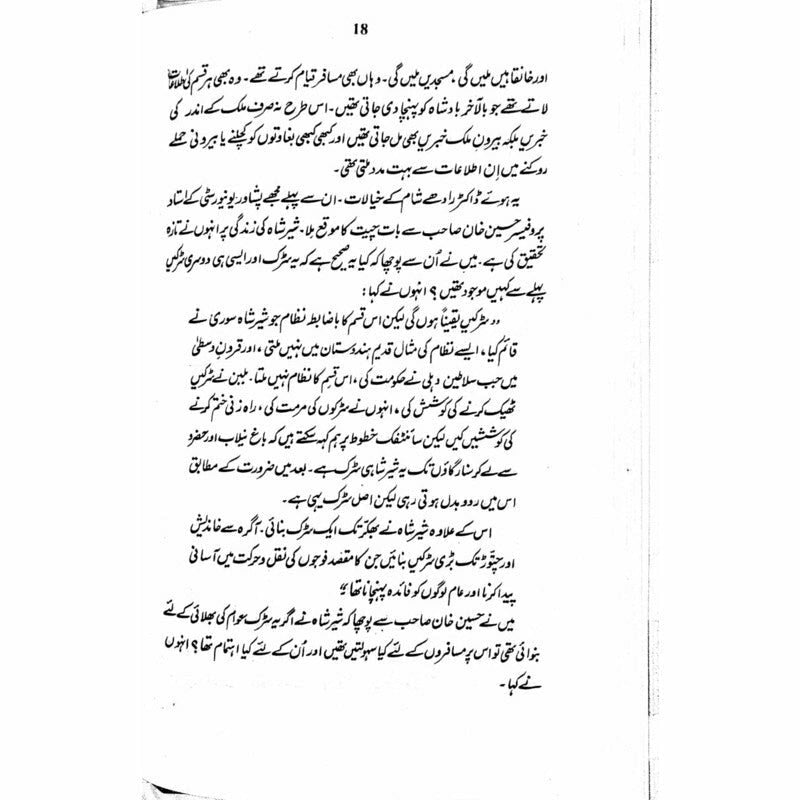 18
اور خانقاہیں ملیں گی، مسجدیں ملیں گی۔ وہاں بھی مسافر قیام کرتے تھے۔ وہ بھی ہر قسم کی اطلاعات
لاتے تھے جو بالآخر بادشاہ کو پہنچا دی جاتی تھیں۔ اس طرح نہ صرف ملک کے اندر کی
خبریں بلکہ بیرون ملک خبریں بھی مل جاتی تھیں اور کبھی کبھی بغاوتوں کو کچلنے یا بیرونی حملے
روکنے میں اِن اطلاعات سے بہت مدد ملتی تھی۔
یہ ہوئے ڈاکٹر رادھے شام کے خیالات۔ ان سے پہلے مجھے پشاور یونیورسٹی کے استاد
پروفیسر حسین خان صاحب سے بات چیت کا موقع ملا۔ شیر شاہ کی زندگی پر انہوں نے تازہ
تحقیق کی ہے۔ میں نے اُن سے پوچھا کہ کیا یہ صحیح ہے کہ یہ سڑک اور ایسی ہی دوسری سڑکیں
پہلے سے کہیں موجود تھیں؟ انہوں نے کہا:
”سڑکیں یقیناً ہوں گی لیکن اس قسم کا باضابطہ نظام جو شیر شاہ سوری نے
قائم کیا، ایسے نظام کی مثال قدیم ہندوستان میں نہیں ملتی، اور قرون وسطیٰ
میں جب سلاطین دہلی نے حکومت کی، اس قسم کا نظام نہیں ملتا۔ بلبن نے سڑکیں
ٹھیک کرنے کی کوشش کی، انہوں نے سڑکوں کی مرمت کی، راہ زنی ختم کرنے
کی کوششیں کیں لیکن سائنٹفک خطوط پر ہم کہہ سکتے ہیں کہ باغ نیلاب اور حضرو
سے لے کر سنار گاؤں تک یہ شیر شاہی سڑک ہے۔ بعد میں ضرورت کے مطابق
اس میں ردو بدل ہوتی رہی لیکن اصل سڑک یہی ہے۔
اس کے علاوہ شیر شاہ نے بھکر تک ایک سڑک بنائی۔ آگرہ سے خاندیش
اور چتوڑ تک بڑی سڑکیں بنائیں جن کا مقصد فوجوں کی نقل و حرکت میں آسانی
پیدا کرنا اور عام لوگوں کو فائدہ پہنچانا تھا“
میں نے حسین خان صاحب سے پوچھا کہ شیر شاہ نے اگر یہ سڑک عوام کی بھلائی کے لئے
بنوائی تھی تو اس پر مسافروں کے لئے کیا سہولتیں تھیں اور اُن کے لئے کیا اہتمام تھا؟ انہوں
نے کہا۔